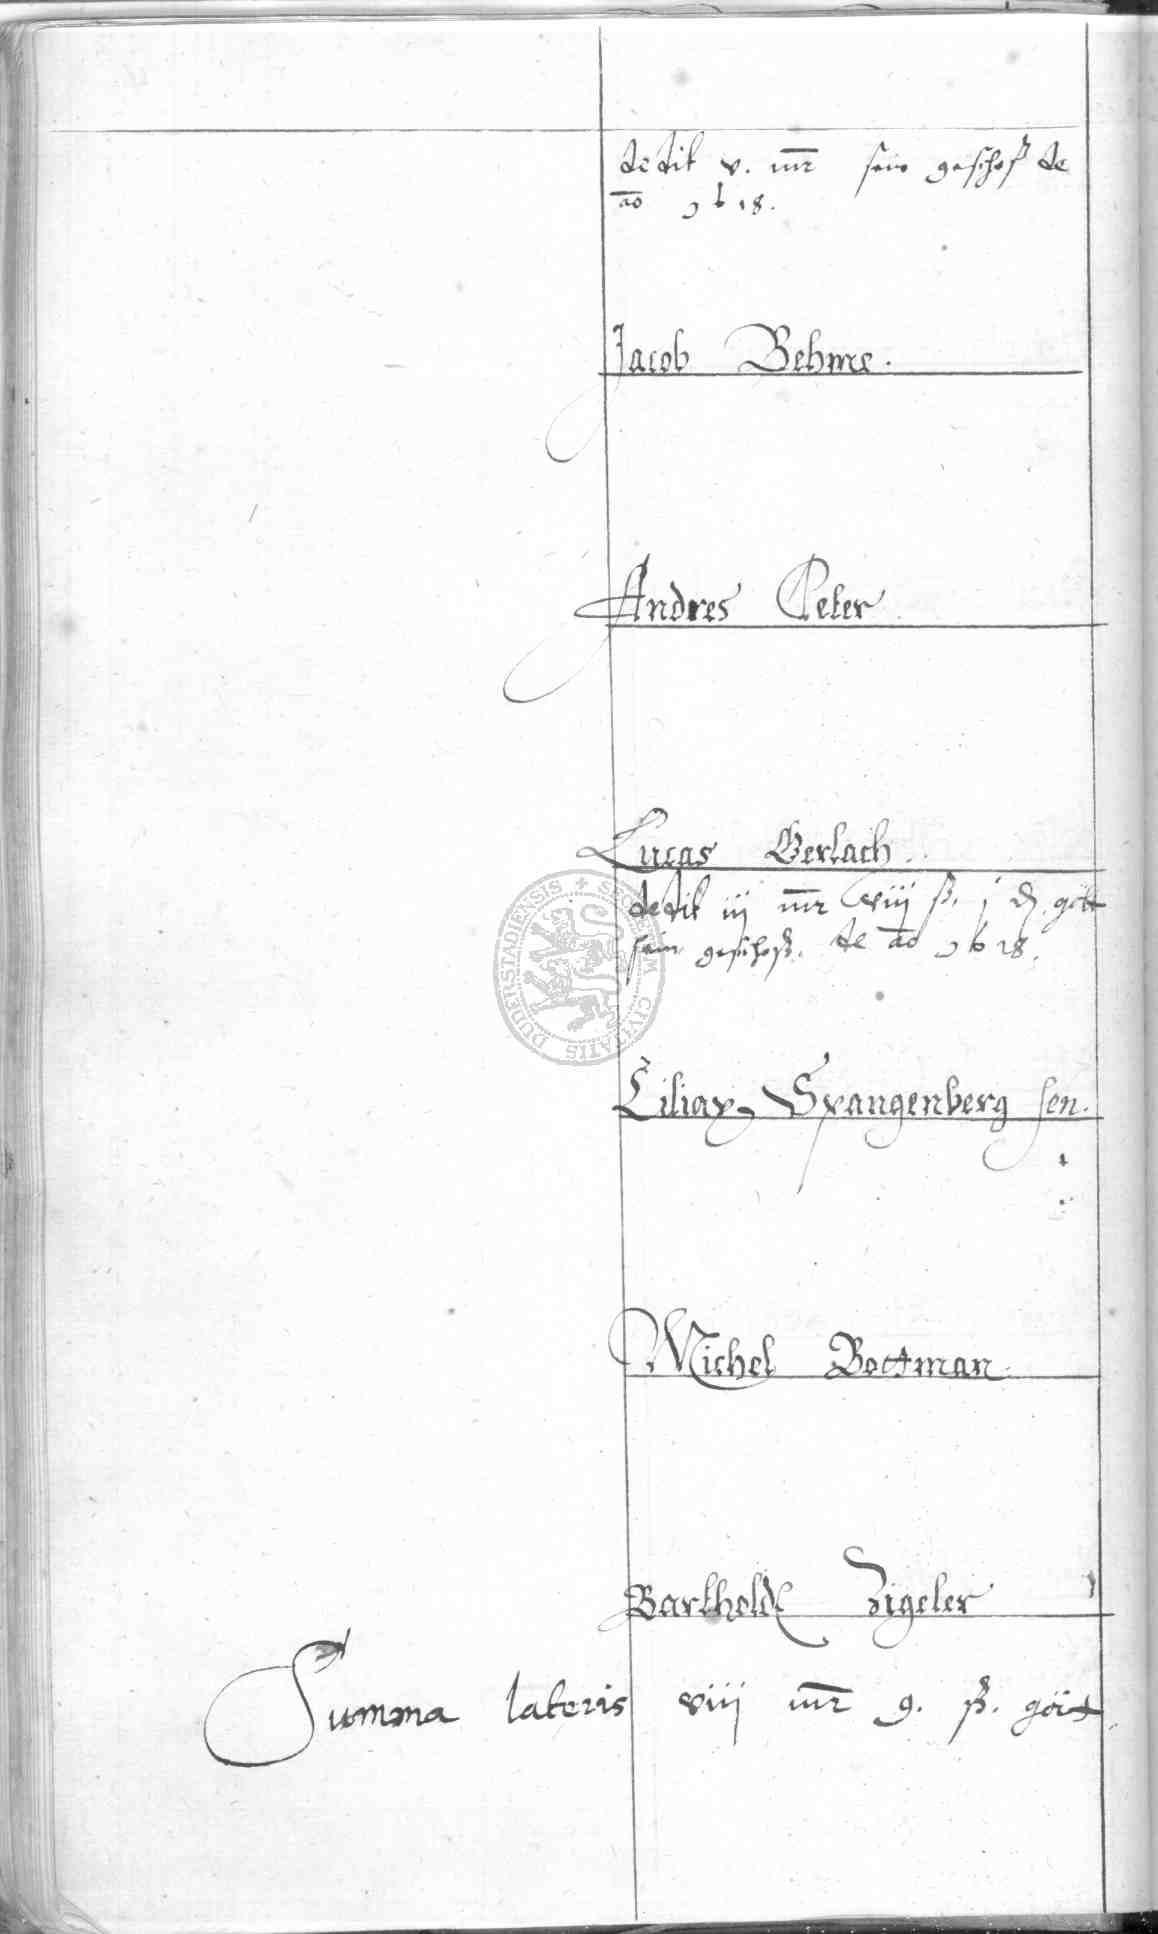 dedit v. mr sein geschoß de
ao 1618.
Jacob Behme.
Andres Peter
Lucas Gerlach.
dedit iij mr viij ß. j ₰. gött
sein geschoß. de ao 1618.
Ciliax Spangenberg sen.
Michel Bottman
Barthold Zigeler
Summa lateris viij mr 9. ß. gött.
SIGILLUM CIVITATIS DUDERSTADIENSIS